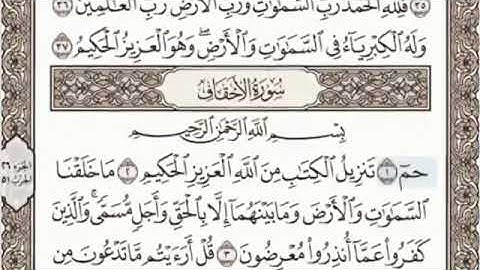 ٣٥ فَلِلَّهِ ٱلْحَمْدُ رَبِّ ٱلسَّمَٰوَٰتِ وَرَبِّ ٱلْأَرْضِ رَبِّ ٱلْعَٰلَمِينَ ٣٦
وَلَهُ ٱلْكِبْرِيَآءُ فِى ٱلسَّمَٰوَٰتِ وَٱلْأَرْضِ ۖ وَهُوَ ٱلْعَزِيزُ ٱلْحَكِيمُ ٣٧
سُورَةُ ٱلْأَحْقَافِ
بِسْمِ ٱللَّهِ ٱلرَّحْمَٰنِ ٱلرَّحِيمِ
حمٓ ١ تَنزِيلُ ٱلْكِتَٰبِ مِنَ ٱللَّهِ ٱلْعَزِيزِ ٱلْحَكِيمِ ٢ مَا خَلَقْنَا
ٱلسَّمَٰوَٰتِ وَٱلْأَرْضَ وَمَا بَيْنَهُمَآ إِلَّا بِٱلْحَقِّ وَأَجَلٍ مُّسَمًّى ۚ وَٱلَّذِينَ
كَفَرُوا۟ عَمَّآ أُنذِرُوا۟ مُعْرِضُونَ ٣ قُلْ أَرَءَيْتُم مَّا تَدْعُونَ مِن
الجزء ٢٦
الحزب ٥١